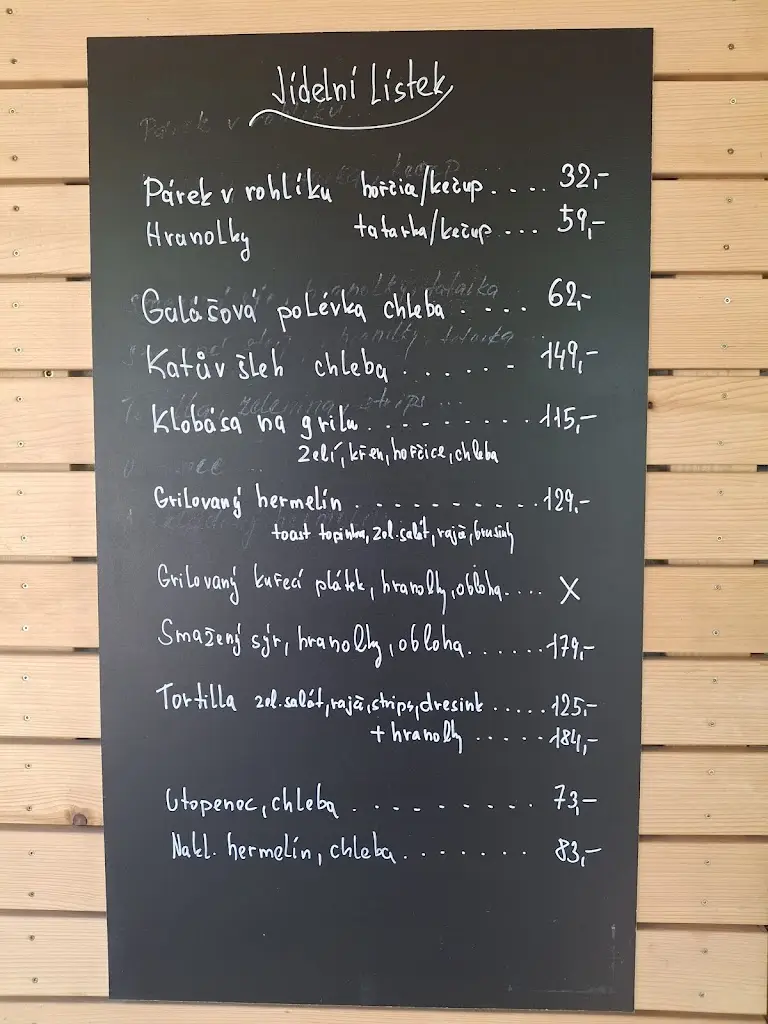 Jídelní Lístek
Párek v rohlíku hořčice/kečup .... 32,-
Hranolky tatarka/kečup ... 59,-
Gulášová polévka chleba .... 62,-
Katův šleh chleba ...... 149,-
Klobása na grilu ......... 115,-
zelí, křen, hořčice, chleba
Grilovaný hermelín ......... 129,-
toast topinka, zel. salát, rajč, brusinky
Grilovaný kuřecí plátek, hranolky, obloha .... X
Smažený sýr, hranolky, obloha ...... 179,-
Tortilla zel. salát, rajč, strips, dresink ..... 125,-
+ hranolky ..... 184,-
Utopenec, chleba ......... 73,-
Nakl. hermelín, chleba ....... 83,-